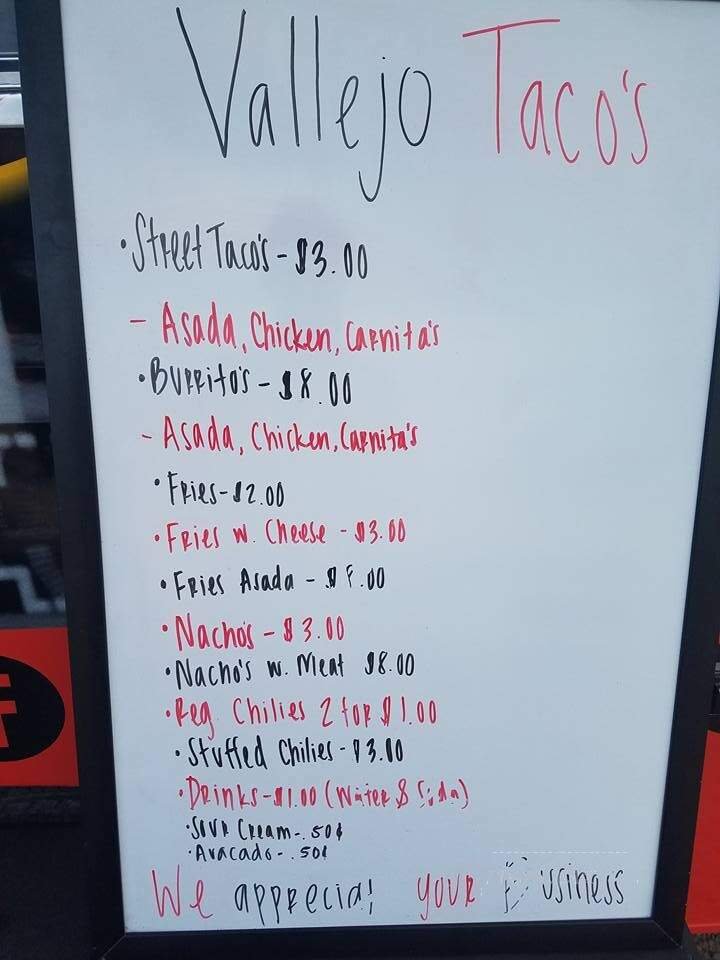 Vallejo Taco's
•Street Taco's - $3.00
- Asada, Chicken, Carnita's
•Burrito's - $8.00
- Asada, Chicken, Carnita's
•Fries - $2.00
•Fries w. Cheese - $3.00
•Fries Asada -
•Nacho's - $3.00
•Nacho's w. Meat $8.00
•Reg. Chilies 2 for $1.00
•Stuffed Chilies - $3.00
•Drinks - $1.00 (Water & Soda)
•Sour Cream - .50¢
•Avacado - .50¢
We your